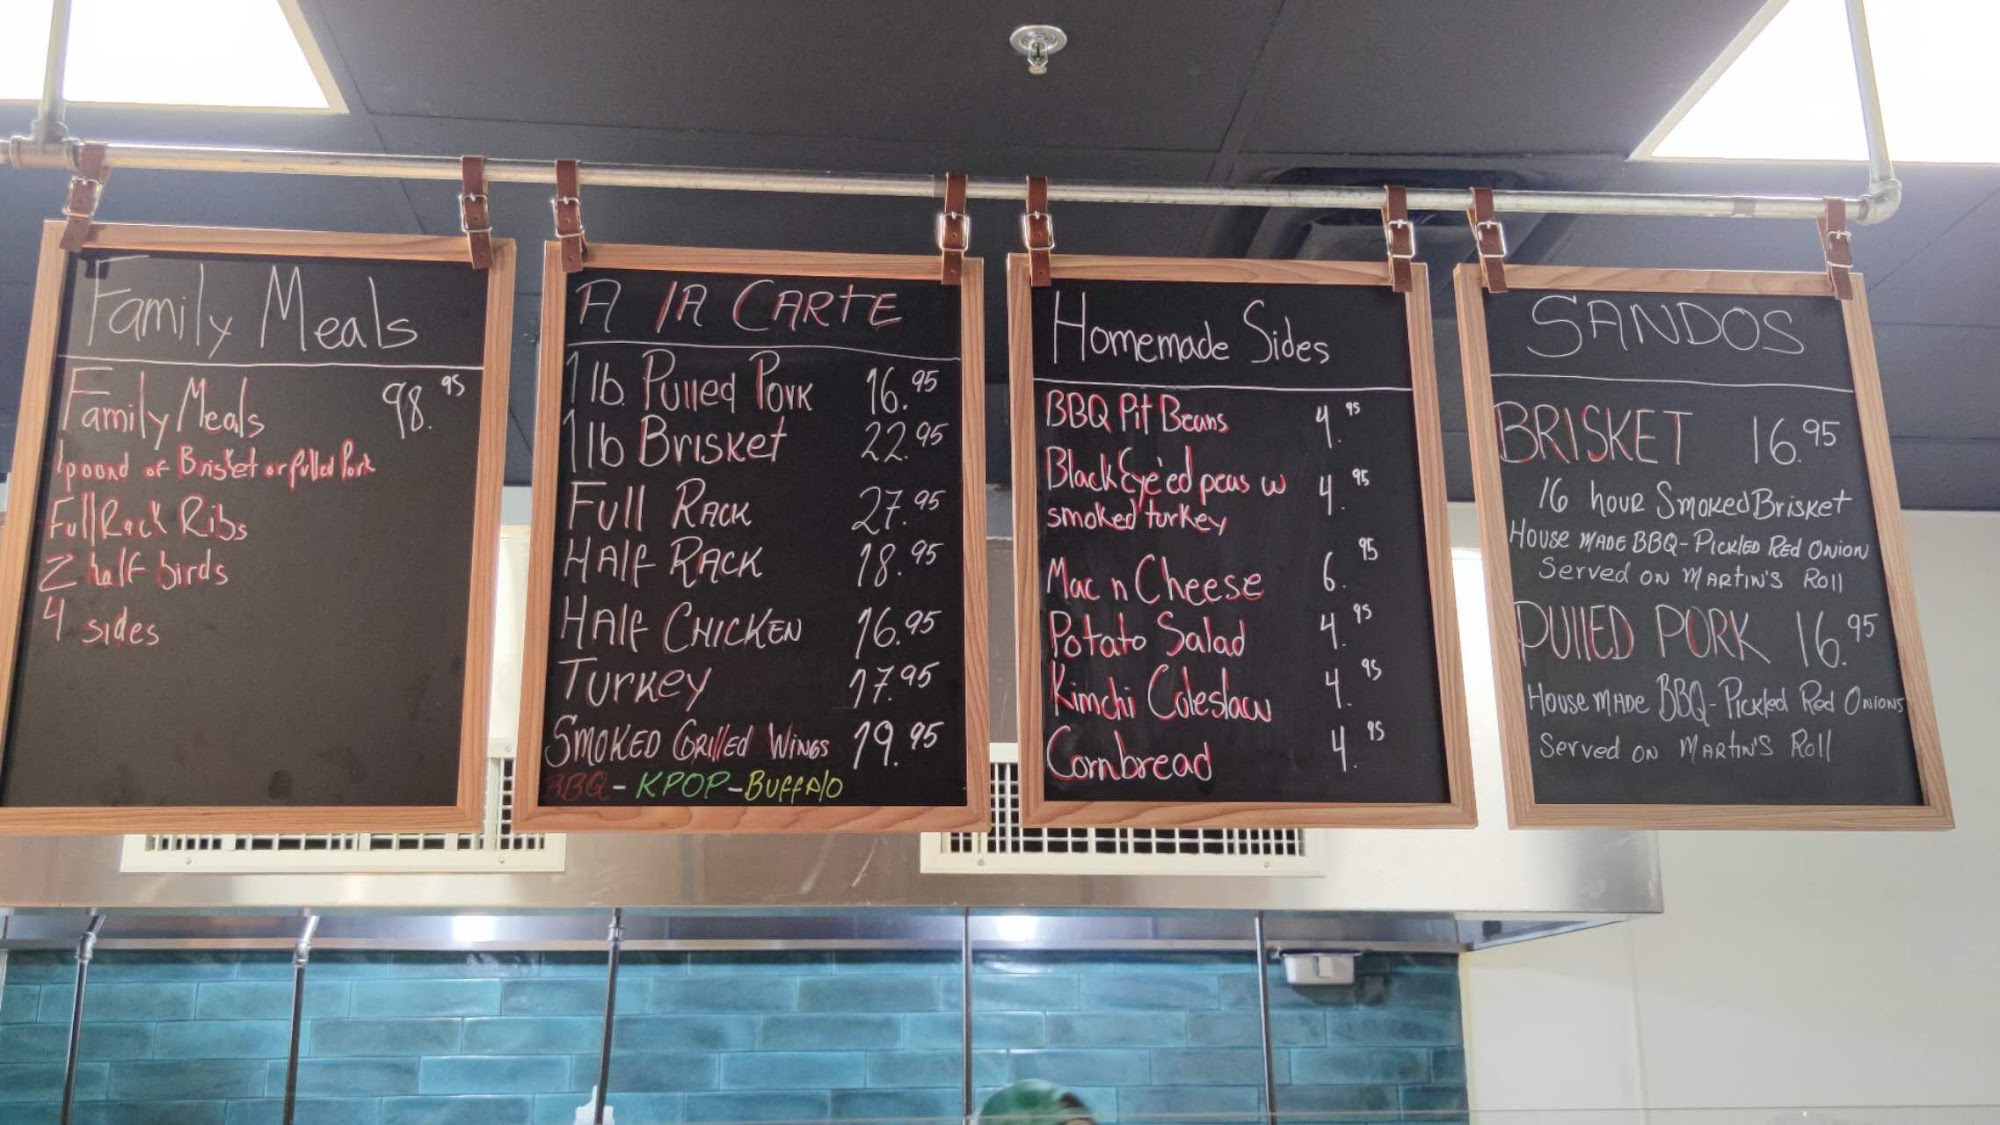 Family Meals
Family Meals 98.95
1 pound of Brisket or Pulled Pork
Full Rack Ribs
2 half birds
4 sides
A lA CARTE
1 lb Pulled Pork 16.95
1 lb Brisket 22.95
Full Rack 27.95
Half Rack 18.95
Half Chicken 16.95
Turkey 17.95
Smoked Grilled Wings 19.95
BBQ - KPOP - Buffalo
Homemade Sides
BBQ Pit Beans 4.95
Black Eye'ed peas w 4.95
smoked turkey
Mac n Cheese 6.95
Potato Salad 4.95
Kimchi Coleslaw 4.95
Cornbread 4.95
SANDOS
BRISKET 16.95
16 hour Smoked Brisket
House made BBQ - Pickled Red Onion
Served on Martin's Roll
PUllED PORK 16.95
House made BBQ - Pickled Red Onions
Served on Martin's Roll